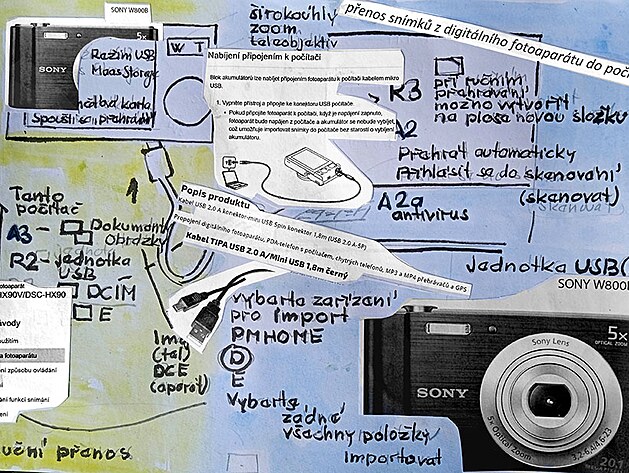 SONY W800B
širokoúhlý
zoom
teleobjektiv
přenos snímků z digitálního fotoaparátu do poč
5x
SONY
Režim USB
Mass Storge
W T
Nabíjení připojením k počítači
Blok akumulátorů lze nabíjet připojením fotoaparátu k počítači kabelem mikro
USB.
1. Vypněte přístroj a připojte ke konektoru USB počítače.
• Pokud připojíte fotoaparát k počítači, když je napájení zapnuto,
fotoaparát bude napájen z počítače a akumulátor se nebude vybíjet,
což umožňuje importovat snímky do počítače bez starostí o vybíjení
akumulátoru.
karta
přehrávání
R3
při ručním
přehrávání
možno vytvořit
na ploše novou složku
A2
Přehrát automaticky
Přihlásit se do skenování
(skenovat)
A2a
antivirus
1
Popis produktu
Kabel USB 2.0 A konektor-mini USB 5pin konektor 1,8m (USB 2.0 A-5P)
Propojení digitálního fotoaparátu, PDA-telefon s počítačem, chytrých telefonů, MP3 a MP4 přehrávačů a GPS
Kabel TIPA USB 2.0 A/Mini USB 1,8m černý
Tento
počítač
A3- Dokumenty
Obrázky
R2- Jednotka
USB
DCIM
E
Jednotka USB(
SONY W800B
HX90V/DSC-HX90
ávody
oužitím
a fotoaparátu
ení způsobu ovládání
ání funkcí snímání
ení
Vyberte zařízení
pro import
PMHOME
D
E
Vyberte
žádné
všechny položky
Importovat
DCE
(aparát)
uční přenos
5x
OPTICAL ZOOM
Sony Lens
SONY
5x Optical Zoom
20.1